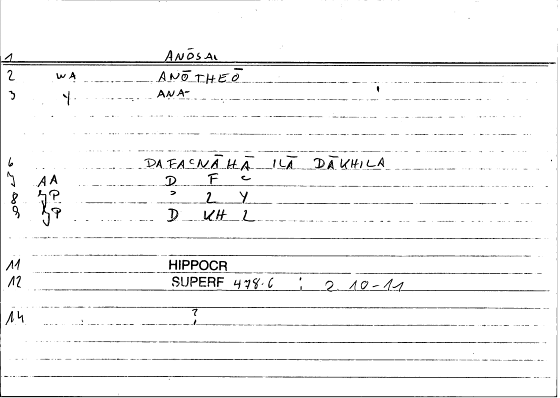 1 ANŌSAI
2 WA ANŌTHEŌ
3 Y ANA-
6 DAFACNĀHĀ ILĀ DĀKHILA
7 AA D F C
8 ȜP ʾ L Y
9 ȜP D KH L
11 HIPPOCR
12 SUPERF 478.6 : 2 10-11
14 ?